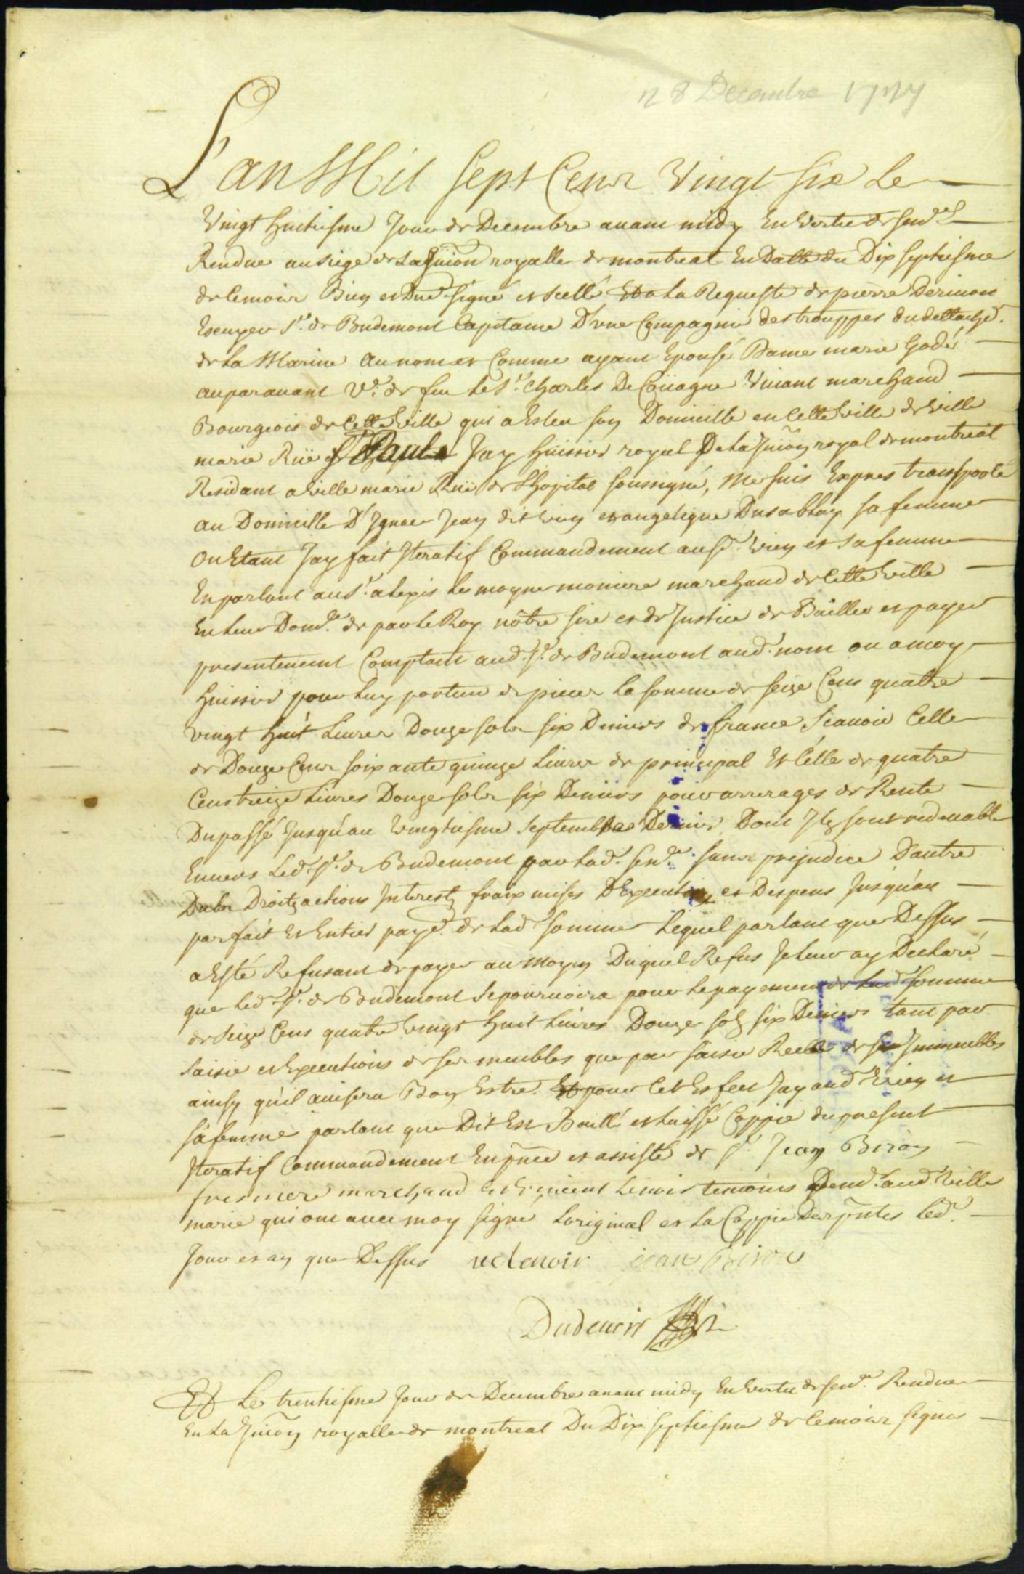 28 Decembre 17
L'an Mil Sept Cens Vingt six Le
Vingt huitiesme Jour de Decembre avant midy En Vertu de Sen.ce
Rendue au siege de La Juri.on royalle de montreal En Datte du Dix septiesme
de Ce mois Bien et Due.t signé et scellé Et a La Requeste de pierre Derivon
Escuyer S.r de Budemont Capitaine D'une Compagnie des trouppes du dettachem.t
de La Marine au nom et Comme ayant Epousé Dame marie Godé
auparavant V.e de feu Le S.r Charles De Coüagne Vivant marchand
Bourgeois de Cette Ville qui a Esleu son Domicille en Cette Ville de Ville
marie Rüe S.t Paul Jay huissier royal De La Juri.on royal de montreal
Residant a Ville marie Rüe de L'hopital soussigné, me suis Expres transporté
au Domicille D'Ignace Jean dit Vien et angelique Dusablon sa femme
ou Etant Jay fait Iteratif Commandement aud. Vien et sa femme
En parlant au S.r alexis Le moyne moniere marchand de Cette Ville
En Leur Dom.le de par Le Roy nôtre sire et de Justice de Bailler et payer
presentement Comptant aud. S.r de Budemont aud. nom ou a moy
huissier pour Luy porteur de pieces La somme de seize Cens quatre
vingt huit Livres Douze sols six Deniers de france scavoir Celle
de Douze Cens soixante quinze Livres de principal Et Celle de quatre
Cens treize Livres Douze sols six Deniers pour arrerages de Rente
Du passé Jusqu'au vingtiesme septembre Dernier Dont Ils sont redevable
Envers Led. S.r de Budemont par Lad. Sen.ce sans prejudice D'autre
Droits actions Interests fraix mises D'Execution et Despens Jusqu'au
parfait Et Entier paye.t de Lad. somme Lequel parlant que Dessus
a Esté Refusant de payer au moyen Duquel Refus Je Leur ay Declaré
que Led. S.r de Budemont se pourvoira pour Le payement de Lad. somme
de seize Cens quatre vingt huit Livres Douze sols six Deniers tant par
saisie et Executions de ses meubles que par saisie Reelle de ses Immeubles
ainsy qu'il avisera Bon Estre Et pour Cet Esfect Jay aud. Vien et
sa femme parlant que Dit Est Baillé et Laissé Coppie du present
Iteratif Commandement En p.nce et assisté de S.r Jean Biron
marchand et Vincent Lenoir temoins Dem.t aud. Ville
marie qui ont avec moy signé L'original et La Coppie Des p.ntes Led.
Jour et an que Dessus ve lenoir jean Biron
Dudevoir
Et Le trentiesme Jour de Decembre avant midy En Vertu de Sen.ce Rendue
En La Juri.on royalle de montreal Du Dix septiesme de Ce mois signée